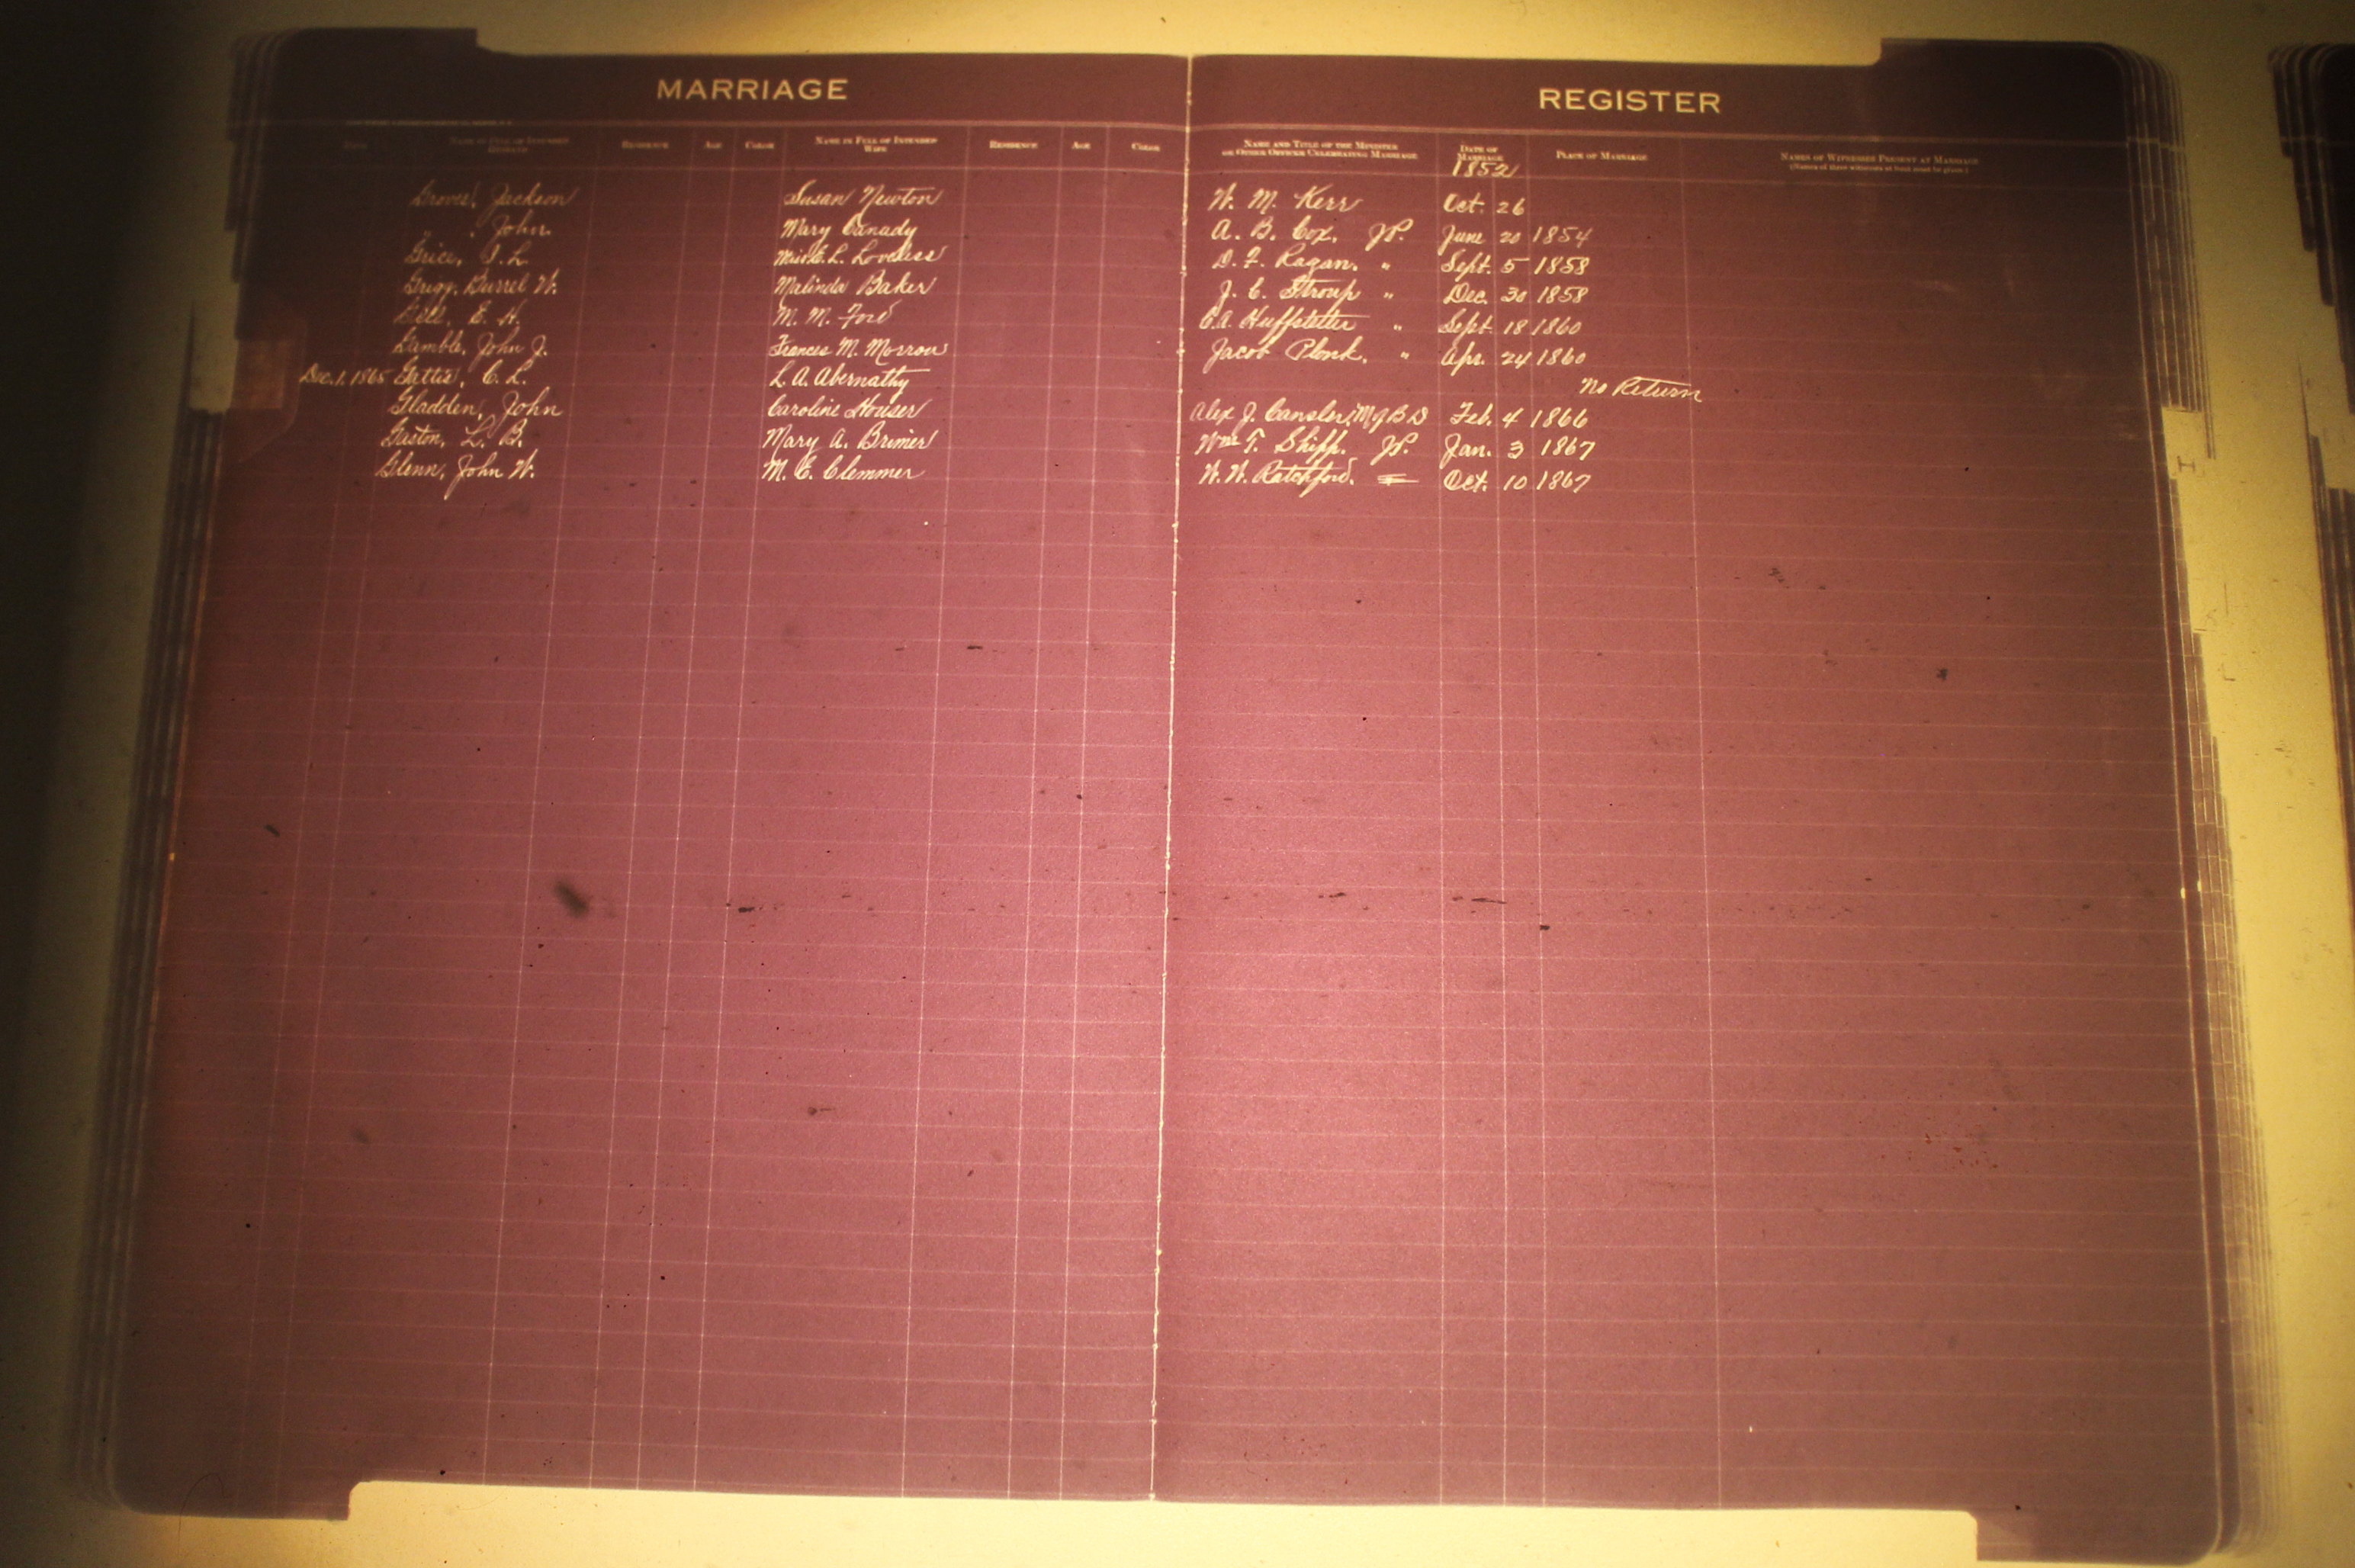 MARRIAGE REGISTER
NAME IN FULL OF INTENDED HUSBAND RESIDENCE AGE COLOR NAME IN FULL OF INTENDED WIFE RESIDENCE AGE COLOR NAME AND TITLE OF THE MINISTER OR OTHER OFFICER CELEBRATING MARRIAGE DATE OF MARRIAGE PLACE OF MARRIAGE NAMES OF WITNESSES PRESENT AT MARRIAGE (Names of three witnesses at least must be given.)
1852
Groves, Jackson Susan Newton W. M. Kerr Oct. 26
" John Mary Canady A. B. Cox, JP. June 20 1854
Grice, L. Loveless D. F. Ragan, " Sept. 5 1858
Grigg, Burrel W. Malinda Baker J. C. Stroup " Dec. 30 1858
E. H. M. M. Ford Huffstetler " Sept. 18 1860
Gamble, John J. Frances M. Morrow Jacob Plonk, " Apr. 24 1860
Dec. 1, 1865 Gattis, C. L. L. A. Abernathy No Return
Gladden, John Caroline Houser Alex J. Cansler, Feb. 4 1866
Gaston, L. B. Mary A. Brimer Wm. T. Shipp, JP. Jan. 3 1867
Glenn, John W. M. E. Clemmer W. W. Ratchford, = Oct. 10 1867
H